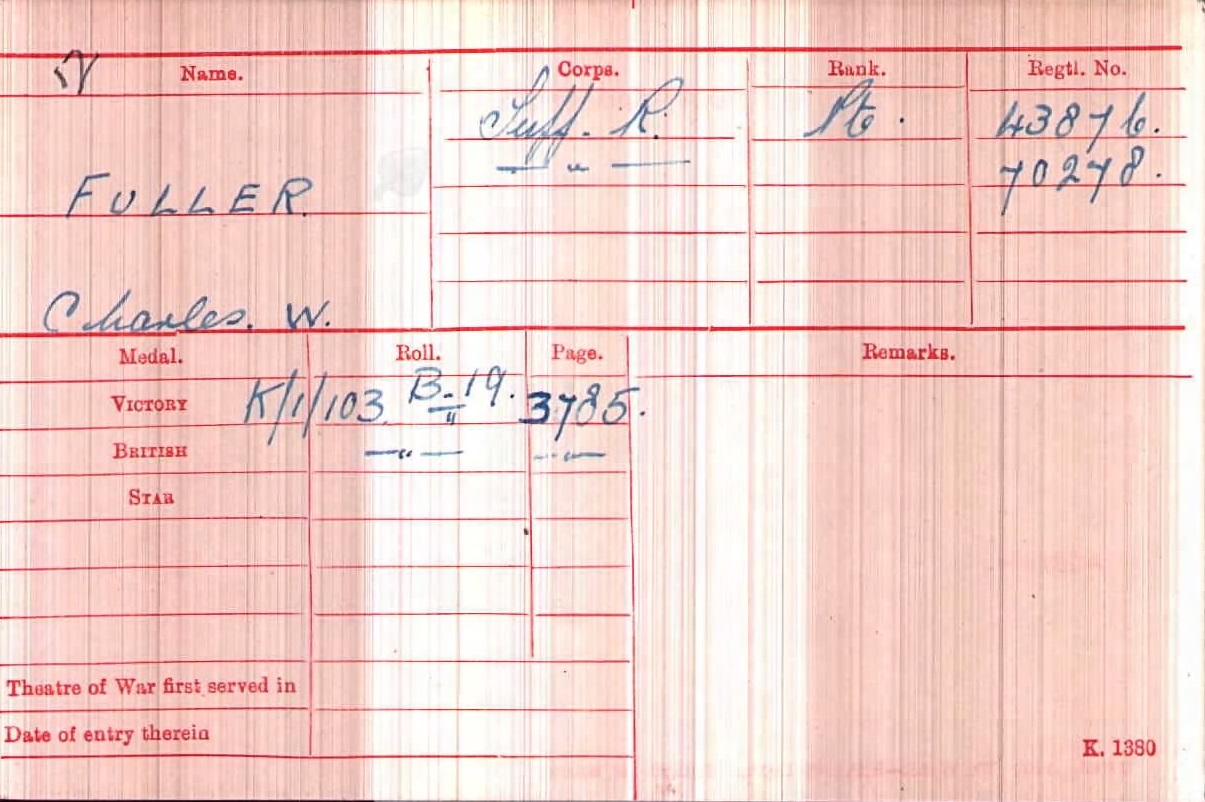 Name. Corps. Rank. Regtl. No.
Suff. R. Pte. 43876.
—"— 70278.
FULLER.
Charles. W.
Medal. Roll. Page. Remarks.
VICTORY K/1/103 B-19. 3785.
BRITISH —"— —"—
STAR
Theatre of War first served in
Date of entry therein
K. 1380